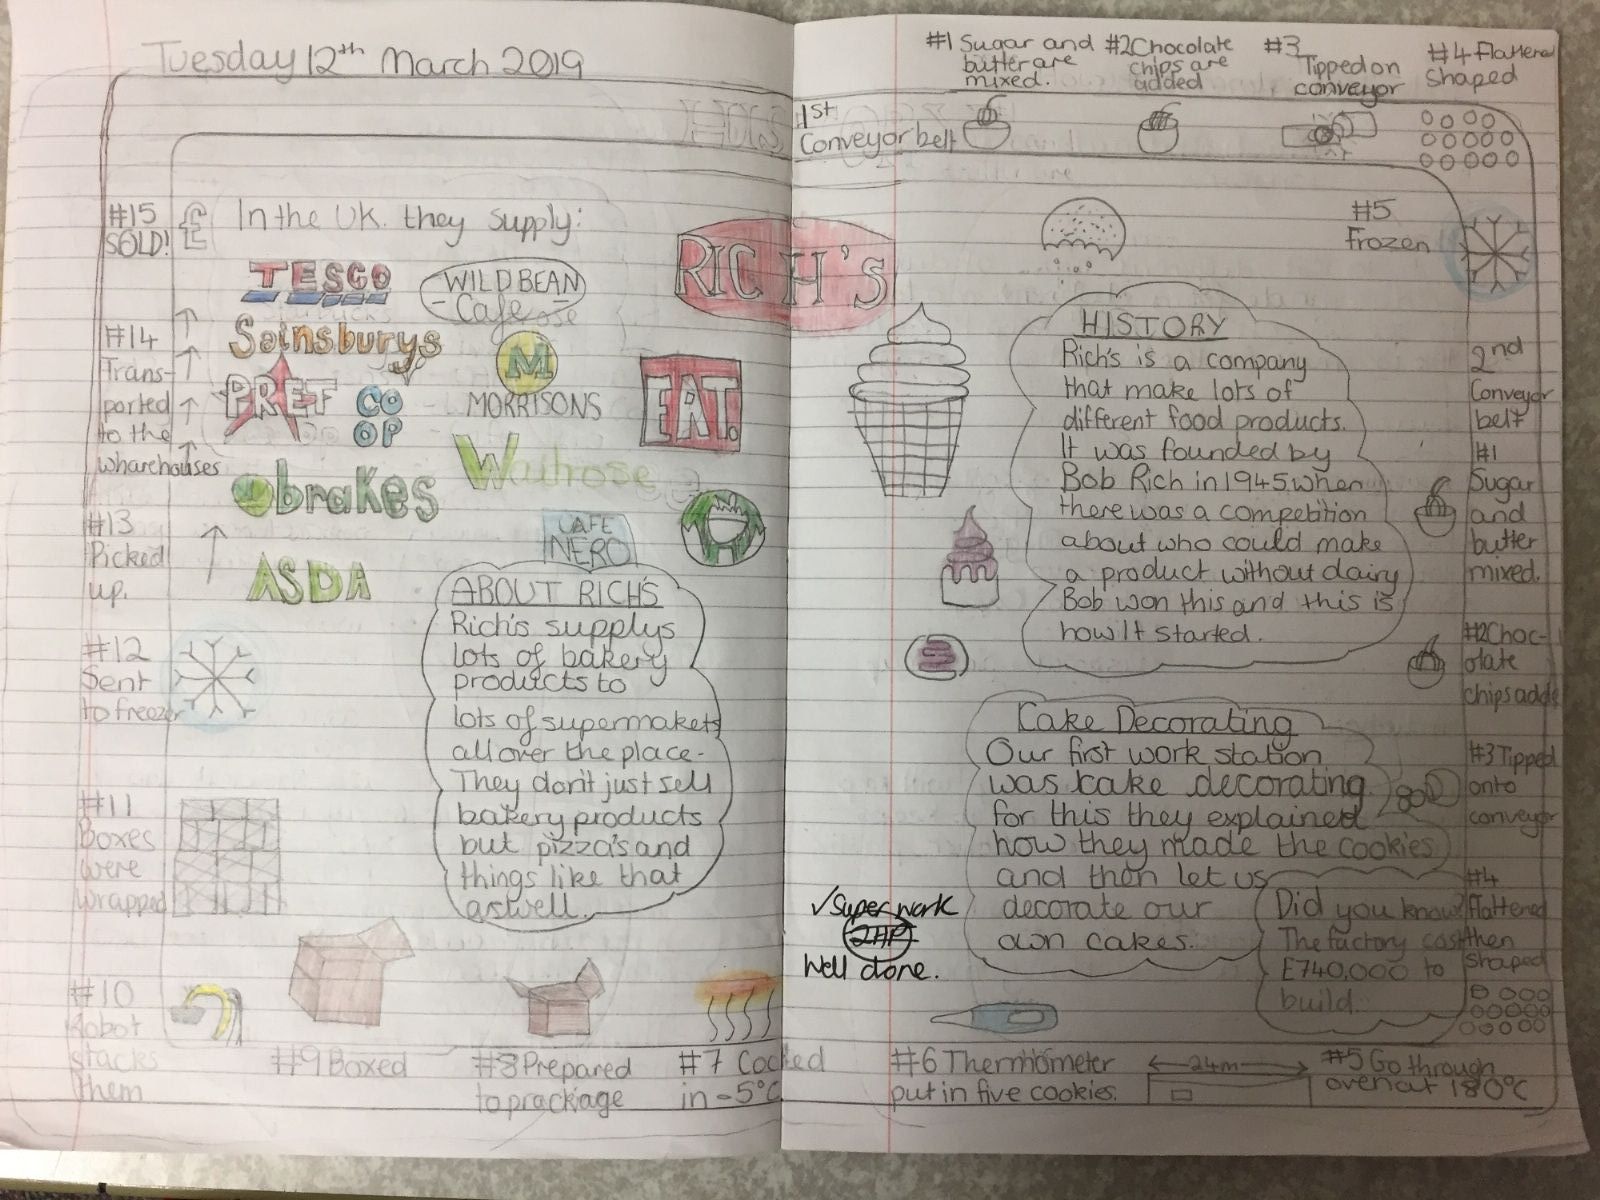 Tuesday 12th March 2019
#15
SOLD!
£
In the UK. they supply:
TESCO
WILD BEAN
Cafe
RICH'S
Sainsburys
M
MORRISONS
PRET
CO
OP
EAT.
Waitrose
brakes
CAFE
NERO
ASDA
#14
Trans-
ported
to the
wharehouses
#13
Picked
up.
#12
Sent
to freezer
#11
Boxes
were
wrapped
#10
Robot
stacks
them
ABOUT RICH'S
Rich's supplys
lots of bakery
products to
lots of supermakets
all over the place-
They don't just sell
bakery products
but pizza's and
things like that
aswell.
#9 Boxed
#8 Prepared
to prackage
#7 Cooked
in -5°C
#1 Sugar and
butter are
mixed.
#2 Chocolate
chips are
added
#3
Tipped on
conveyor
#4 Flattened
Shaped
1st
Conveyor belt
#5
Frozen
HISTORY
Rich's is a company
that make lots of
different food products.
It was founded by
Bob Rich in 1945 when
there was a competition
about who could make
a product without dairy
Bob won this and this is
how It started.
2nd
Conveyor
belt
#1
Sugar
and
butter
mixed.
#2 Choc-
olate
chips adde
#3 Tipped
onto
conveyor
#4
flattened
then
shaped
Cake Decorating
Our first work station
was cake decorating
for this they explained
how they made the cookies
and then let us
decorate our
own cakes.
Did you know?
The factory cost
£740,000 to
build.
✓Super work
2HP
Well done.
#6 Thermometer
put in five cookies.
24m
#5 Go through
oven at 180°C